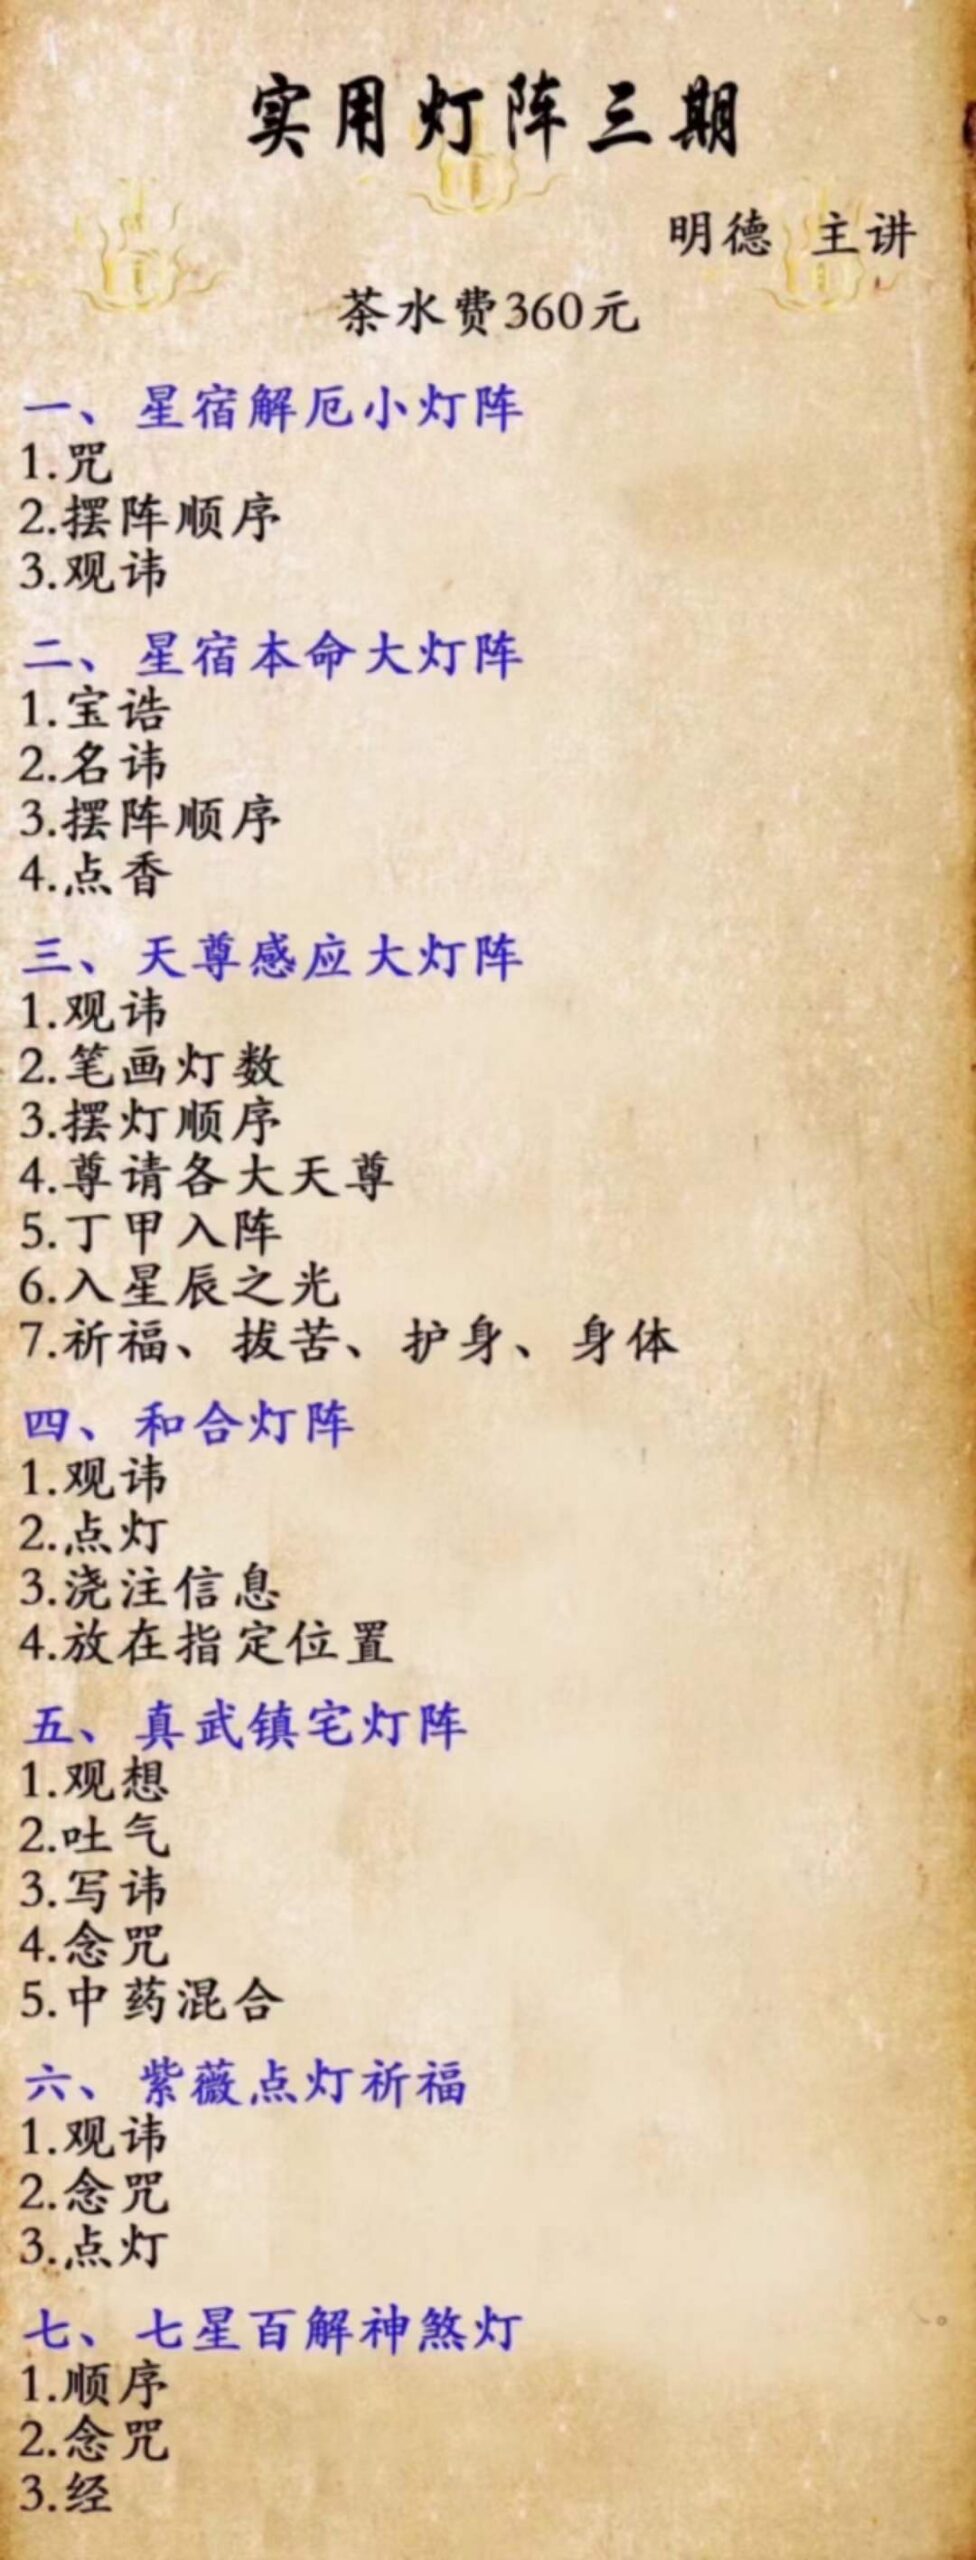 实用灯阵三期
明德 主讲
茶水费360元
一、星宿解厄小灯阵
1.咒
2.摆阵顺序
3.观讳
二、星宿本命大灯阵
1.宝诰
2.名讳
3.摆阵顺序
4.点香
三、天尊感应大灯阵
1.观讳
2.笔画灯数
3.摆灯顺序
4.尊请各大天尊
5.丁甲入阵
6.入星辰之光
7.祈福、拔苦、护身、身体
四、和合灯阵
1.观讳
2.点灯
3.浇注信息
4.放在指定位置
五、真武镇宅灯阵
1.观想
2.吐气
3.写讳
4.念咒
5.中药混合
六、紫薇点灯祈福
1.观讳
2.念咒
3.点灯
七、七星百解神煞灯
1.顺序
2.念咒
3.经